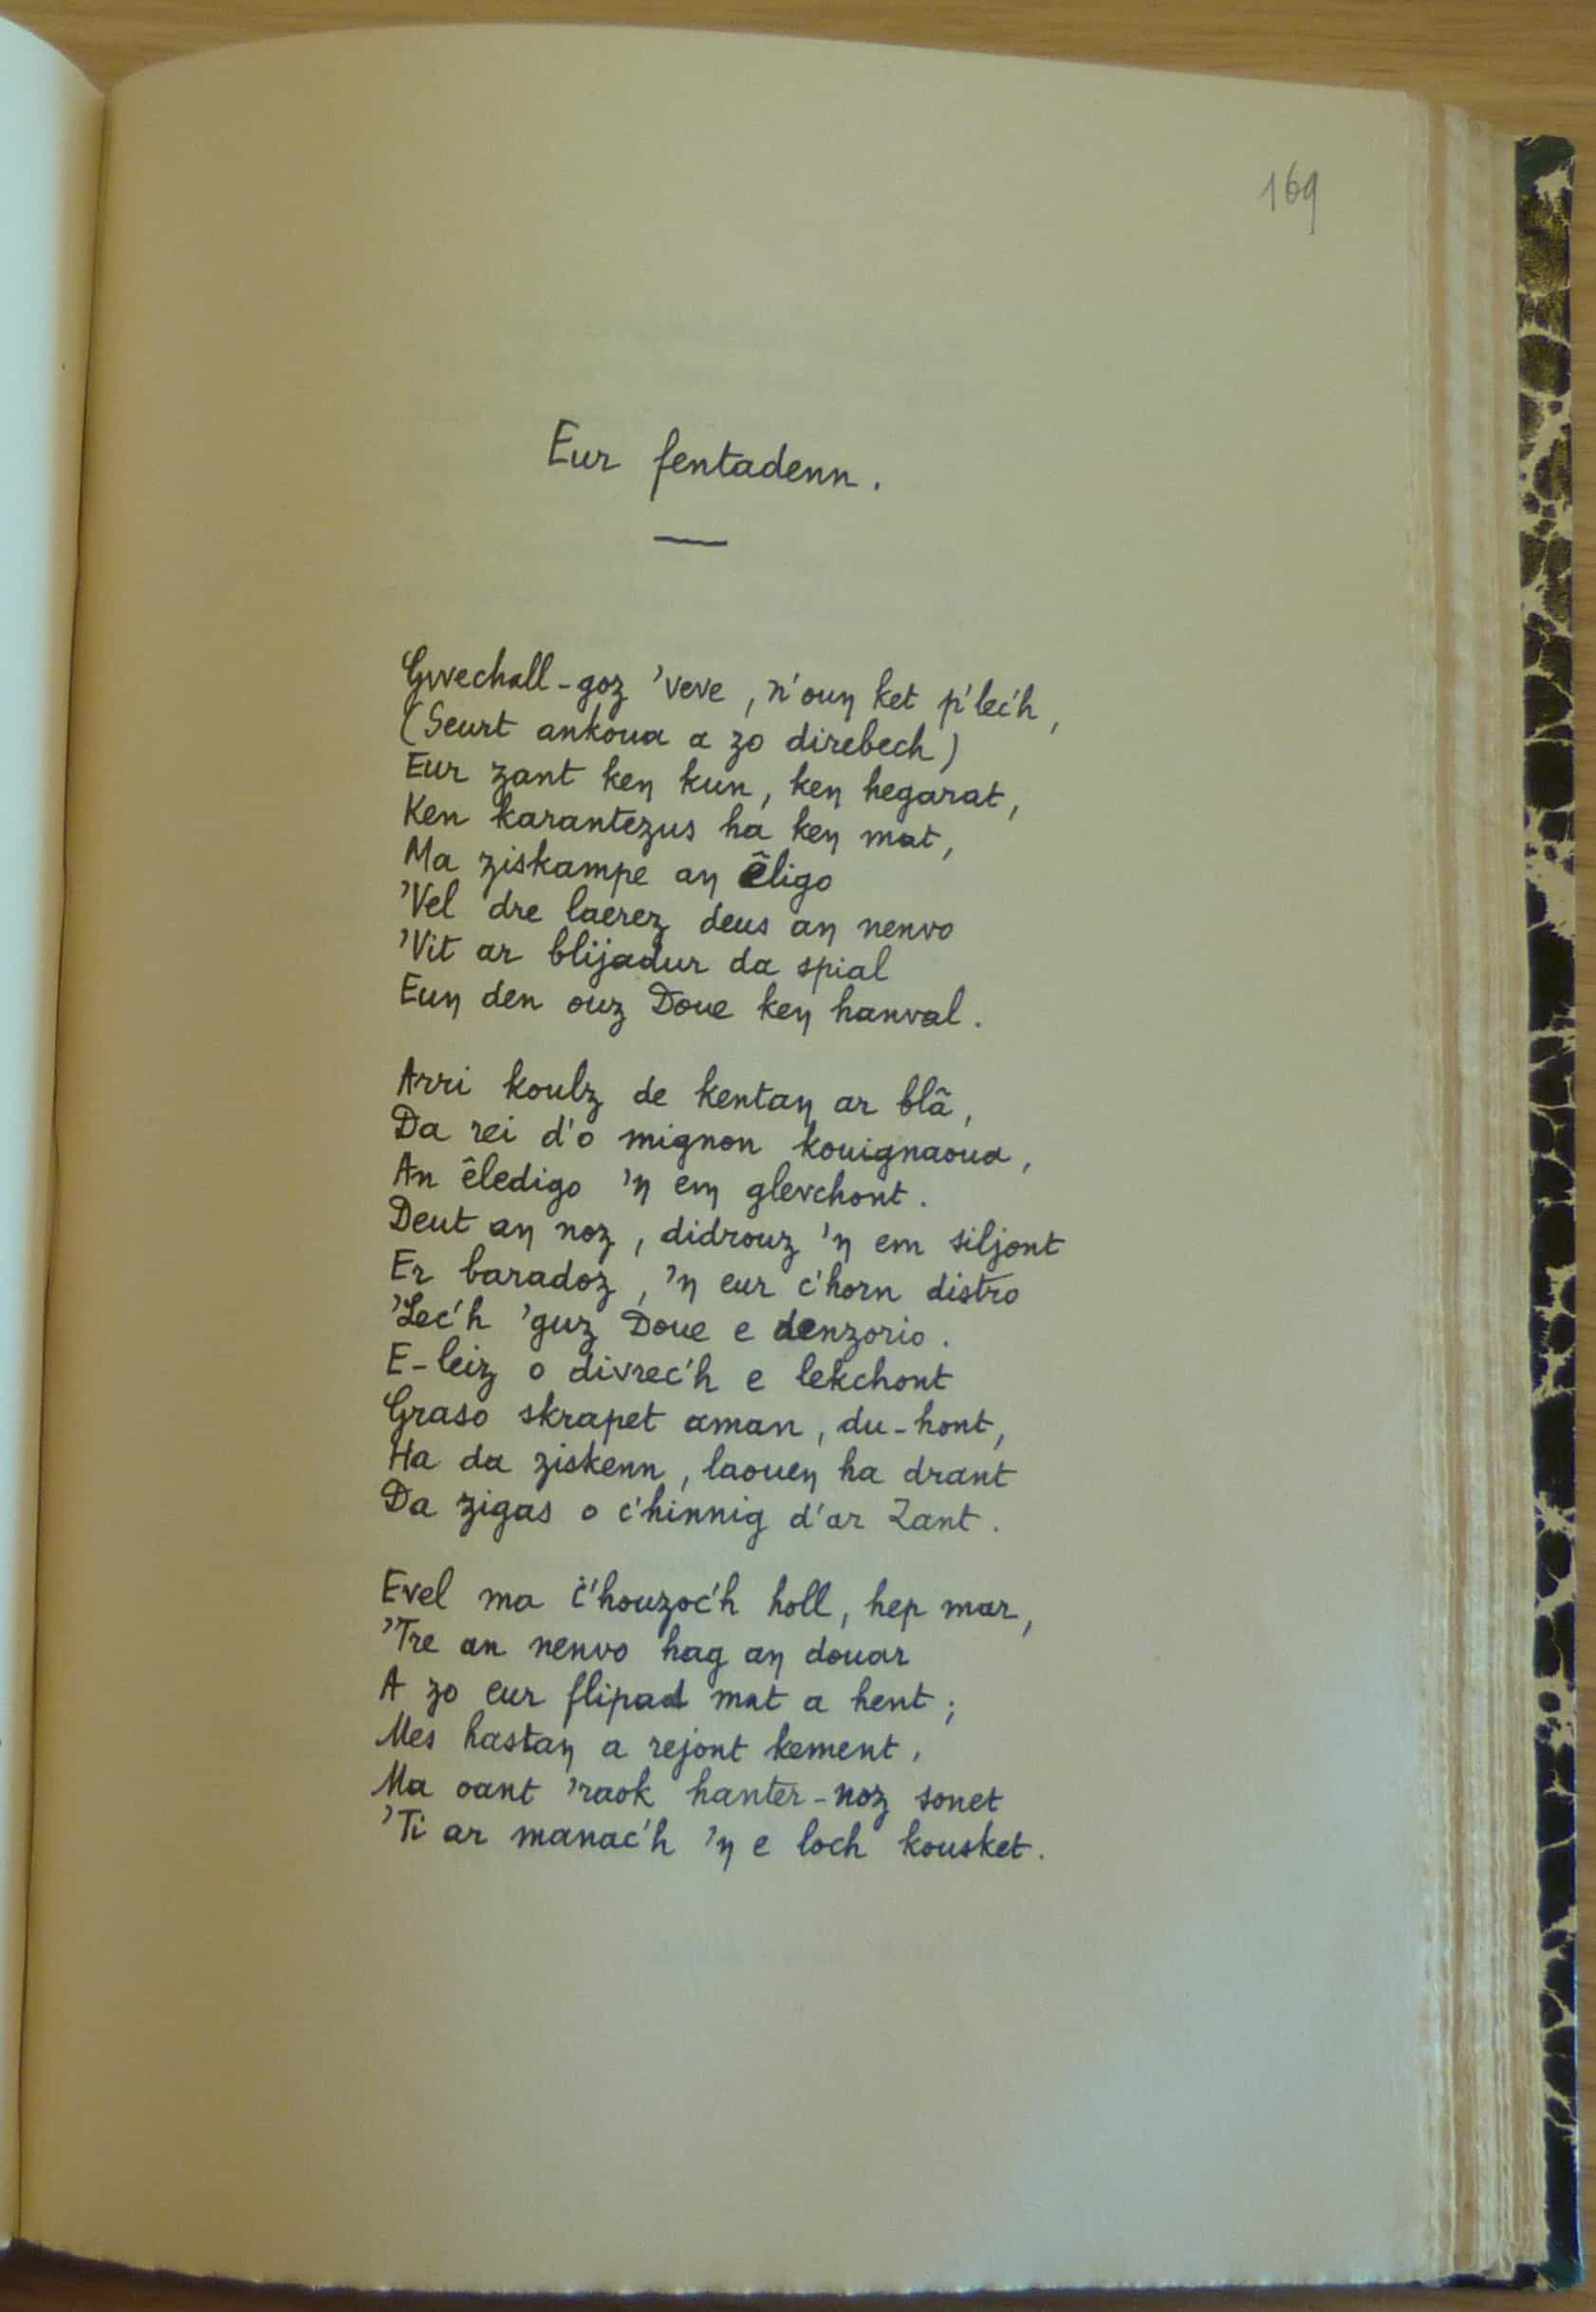 169
Eur fentadenn.
Gwechall-goz 'veve, n'ouŋ ket p'lec'h,
(Seurt ankoua a zo direbech)
Eur zant keŋ kun, keŋ hegarat,
Ken karantezus ha keŋ mat,
Ma ziskampe aŋ êligo
'Vel dre laerez deus aŋ nenvo
'Vit ar blijadur da spial
Euŋ den ouz Doue keŋ hanval.
Arri koulz de kentaŋ ar blâ,
Da rei d'o mignon kouignaoua,
An êledigo 'ŋ eŋ glevchont.
Deut aŋ noz, didrouz 'ŋ em siljont
Er baradoz, 'ŋ eur c'horn distro
'Lec'h 'guz Doue e denzorio.
E-leiz o divrec'h e lekchont
Graso skrapet aman, du-hont,
Ha da ziskenn, laoueŋ ha drant
Da zigas o c'hinnig d'ar Zant.
Evel ma c'houzoc'h holl, hep mar,
'Tre an nenvo hag aŋ douar
A zo eur flipad mat a hent;
Mes hastaŋ a rejont kement,
Ma oant 'raok hanter-noz sonet
'Ti ar manac'h 'ŋ e loch kousket.